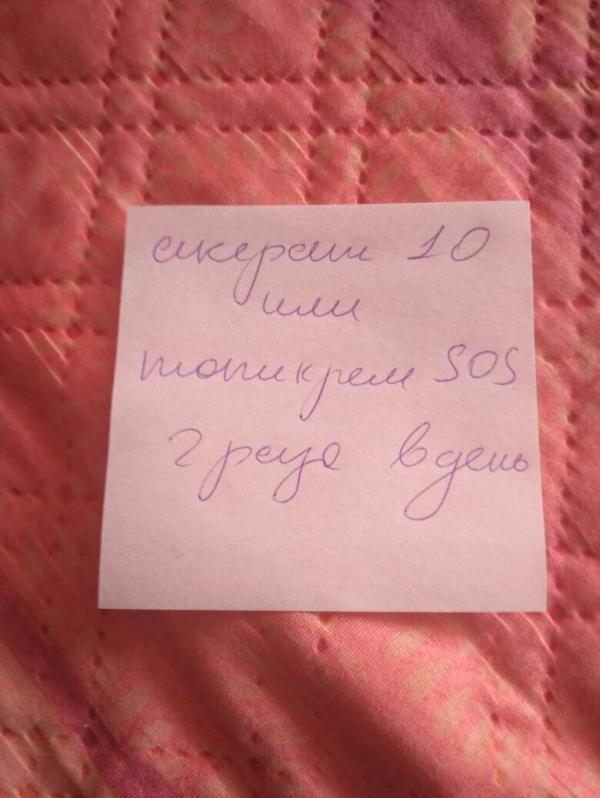 акерат 10
или
топикрем SOS
2 раза в день